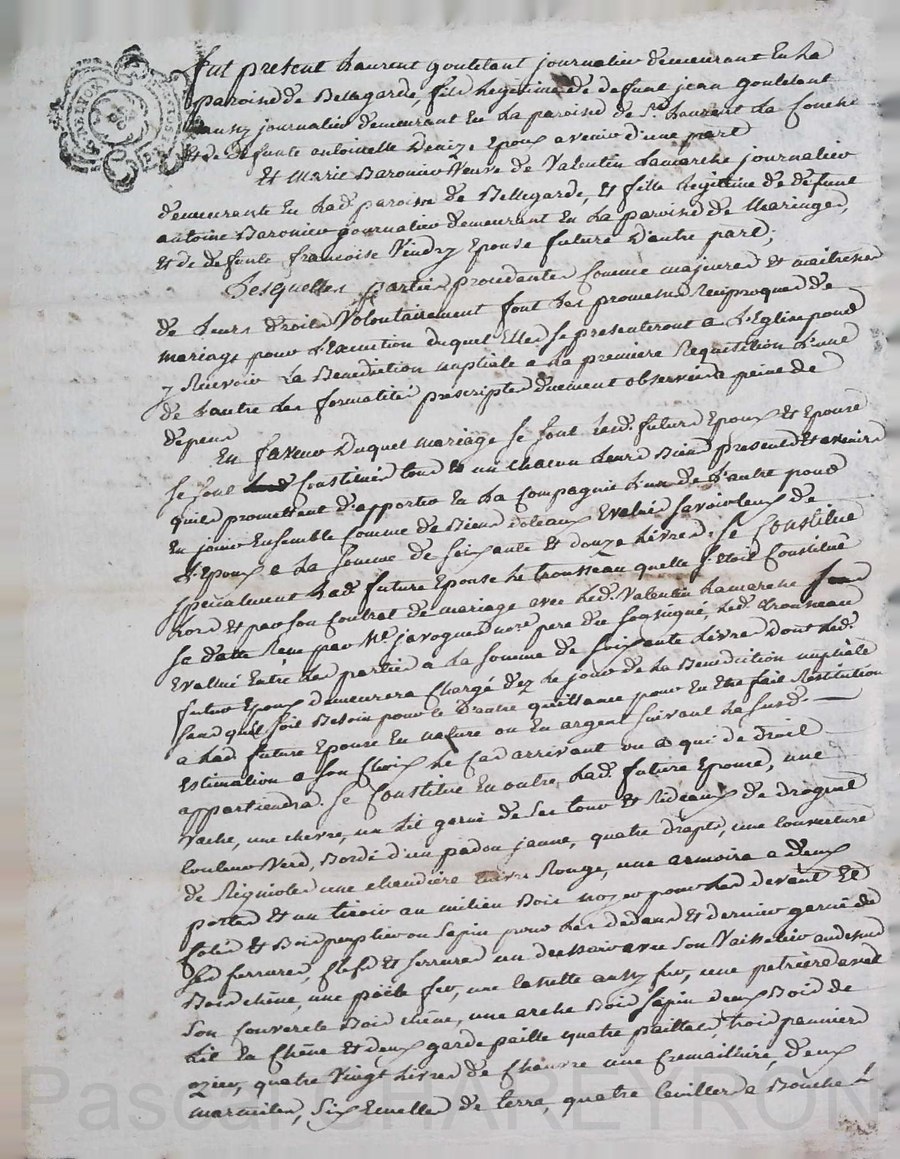 fut present Laurent goutelant journalier demeurant En La
paroisse de Bellegarde, fils Legitime de defunt jean goutelant
aussy journalier demeurant En La paroisse de St. Laurent La Conche
et de defunte antoinette Epoux avenir d'une part
Et Marie Baronnier Veuve de Valentin Lamarche journalier
demeurante En Lad. paroisse de Bellegarde, Et fille Legitime de defunt
antoine Baronnier journalier demeurant En La paroisse de Maringes,
Et de defunte francoise Vindry Epouse future D'autre part;
Lesquelles parties procedantes Comme majeures et maitresses
de Leurs droits Volontairement font Les promesses Reciproques de
mariage pour L'Execution duquel Elles se presenteront a L'Eglise pour
y Recevoir La Benediction nuptiale a La premiere Requisition L'une
de L'autre Les formalités prescriptes duement observées a peine de
depens
En faveur Duquel mariage se sont Lesd. futurs Epoux et Epouse
se sont Constitués tous et un chacun Leurs Biens presents Et avenirs
quils promettent d'apporter En La Compagnie L'un de L'autre pour
En jouir Ensemble Comme de Biens dotaux Evalués savoir Ceux de
L'Epoux a La somme de soixante Et douze Livres, se Constitue
specialment Lad. future Epouse Le trousseau quelle s'Etoit Constitué
Lors Et par son Contrat de mariage avec Led. Valentin Lamarche
se datte Reçu par Me. javogues nore. pere du soussigné, Led. trousseau
Evallué Entre Les parties a La somme de soixante Livres Dont Led.
futur Epoux demeurera Chargé dez Le jour de La Benediction nuptiale
sans qu'il soit Besoin pour ce D'autre quittance pour En Etre fait Restitution
a Lad. future Epouse En nature ou En argent suivant La susd.
Estimation a son Choix Le Cas arrivant ou a qui de droit
appartiendra. se Constitue En outre Lad. future Epouse, une
vache, une chevre, un Lit garni de Ses tour Et Rideaux de droguet
Couleur Verd, Bordé d'un padou jaune, quatre draps, une Couverture
de une chaudière Cuivre Rouge, une armoire a deux
portes Et un tiroir au milieu Bois noyer pour Les devant Et
Cotés Et Bois peuplier ou Sapin pour Les dedans Et dernier garnie de
ses ferrures, Clefs Et serrures un dressoir avec son Vaisselier audessus
Bois chêne, une poële fer, une Cassette aussy fer, une petrière avec
son Couvercle Bois chêne, une arche Bois Sapin deux Bois de
Lit En Chêne Et deux garde paille quatre paillats, trois panniers
ozier, quatre Vingt Livres de Chanvre une Cremaillière, deux
marmites, Six Ecuelles de terre, quatre Cuilliers a Bouche
Pascal CHAREYRON